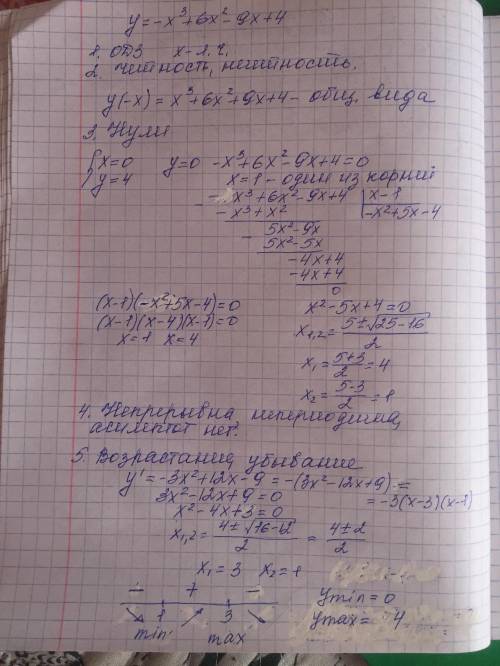 y=-x³+6x²-9x+4
1. ОДЗ x-л.ч.
2. Четность, нечетность.
y(-x)=x³+6x²+9x+4 - общ. вида
3. Нули
{x=0 y=0 -x³+6x²-9x+4=0
y=4 x=1 - один из корний
-x³+6x²-9x+4 | x-1
-x³+x² -x²+5x-4
5x²-9x
5x²-5x
-4x+4
-4x+4
0
(x-1)(-x²+5x-4)=0
(x-1)(x-4)(x-1)=0
x=1 x=4
x²-5x+4=0
x1,2=(5±√25-16)/2
x1=(5+3)/2=4
x2=(5-3)/2=1
4. Непрерывна непериодична,
асимптот нет.
5. Возрастание, убывание
y'=-3x²+12x-9=-(3x²-12x+9)=
=-3(x-3)(x-1)
3x²-12x+9=0
x²-4x+3=0
x1,2=(4±√16-12)/2=(4±2)/2
x1=3 x2=1
- 7 -
1 3
min max
ymin=0
ymax=4